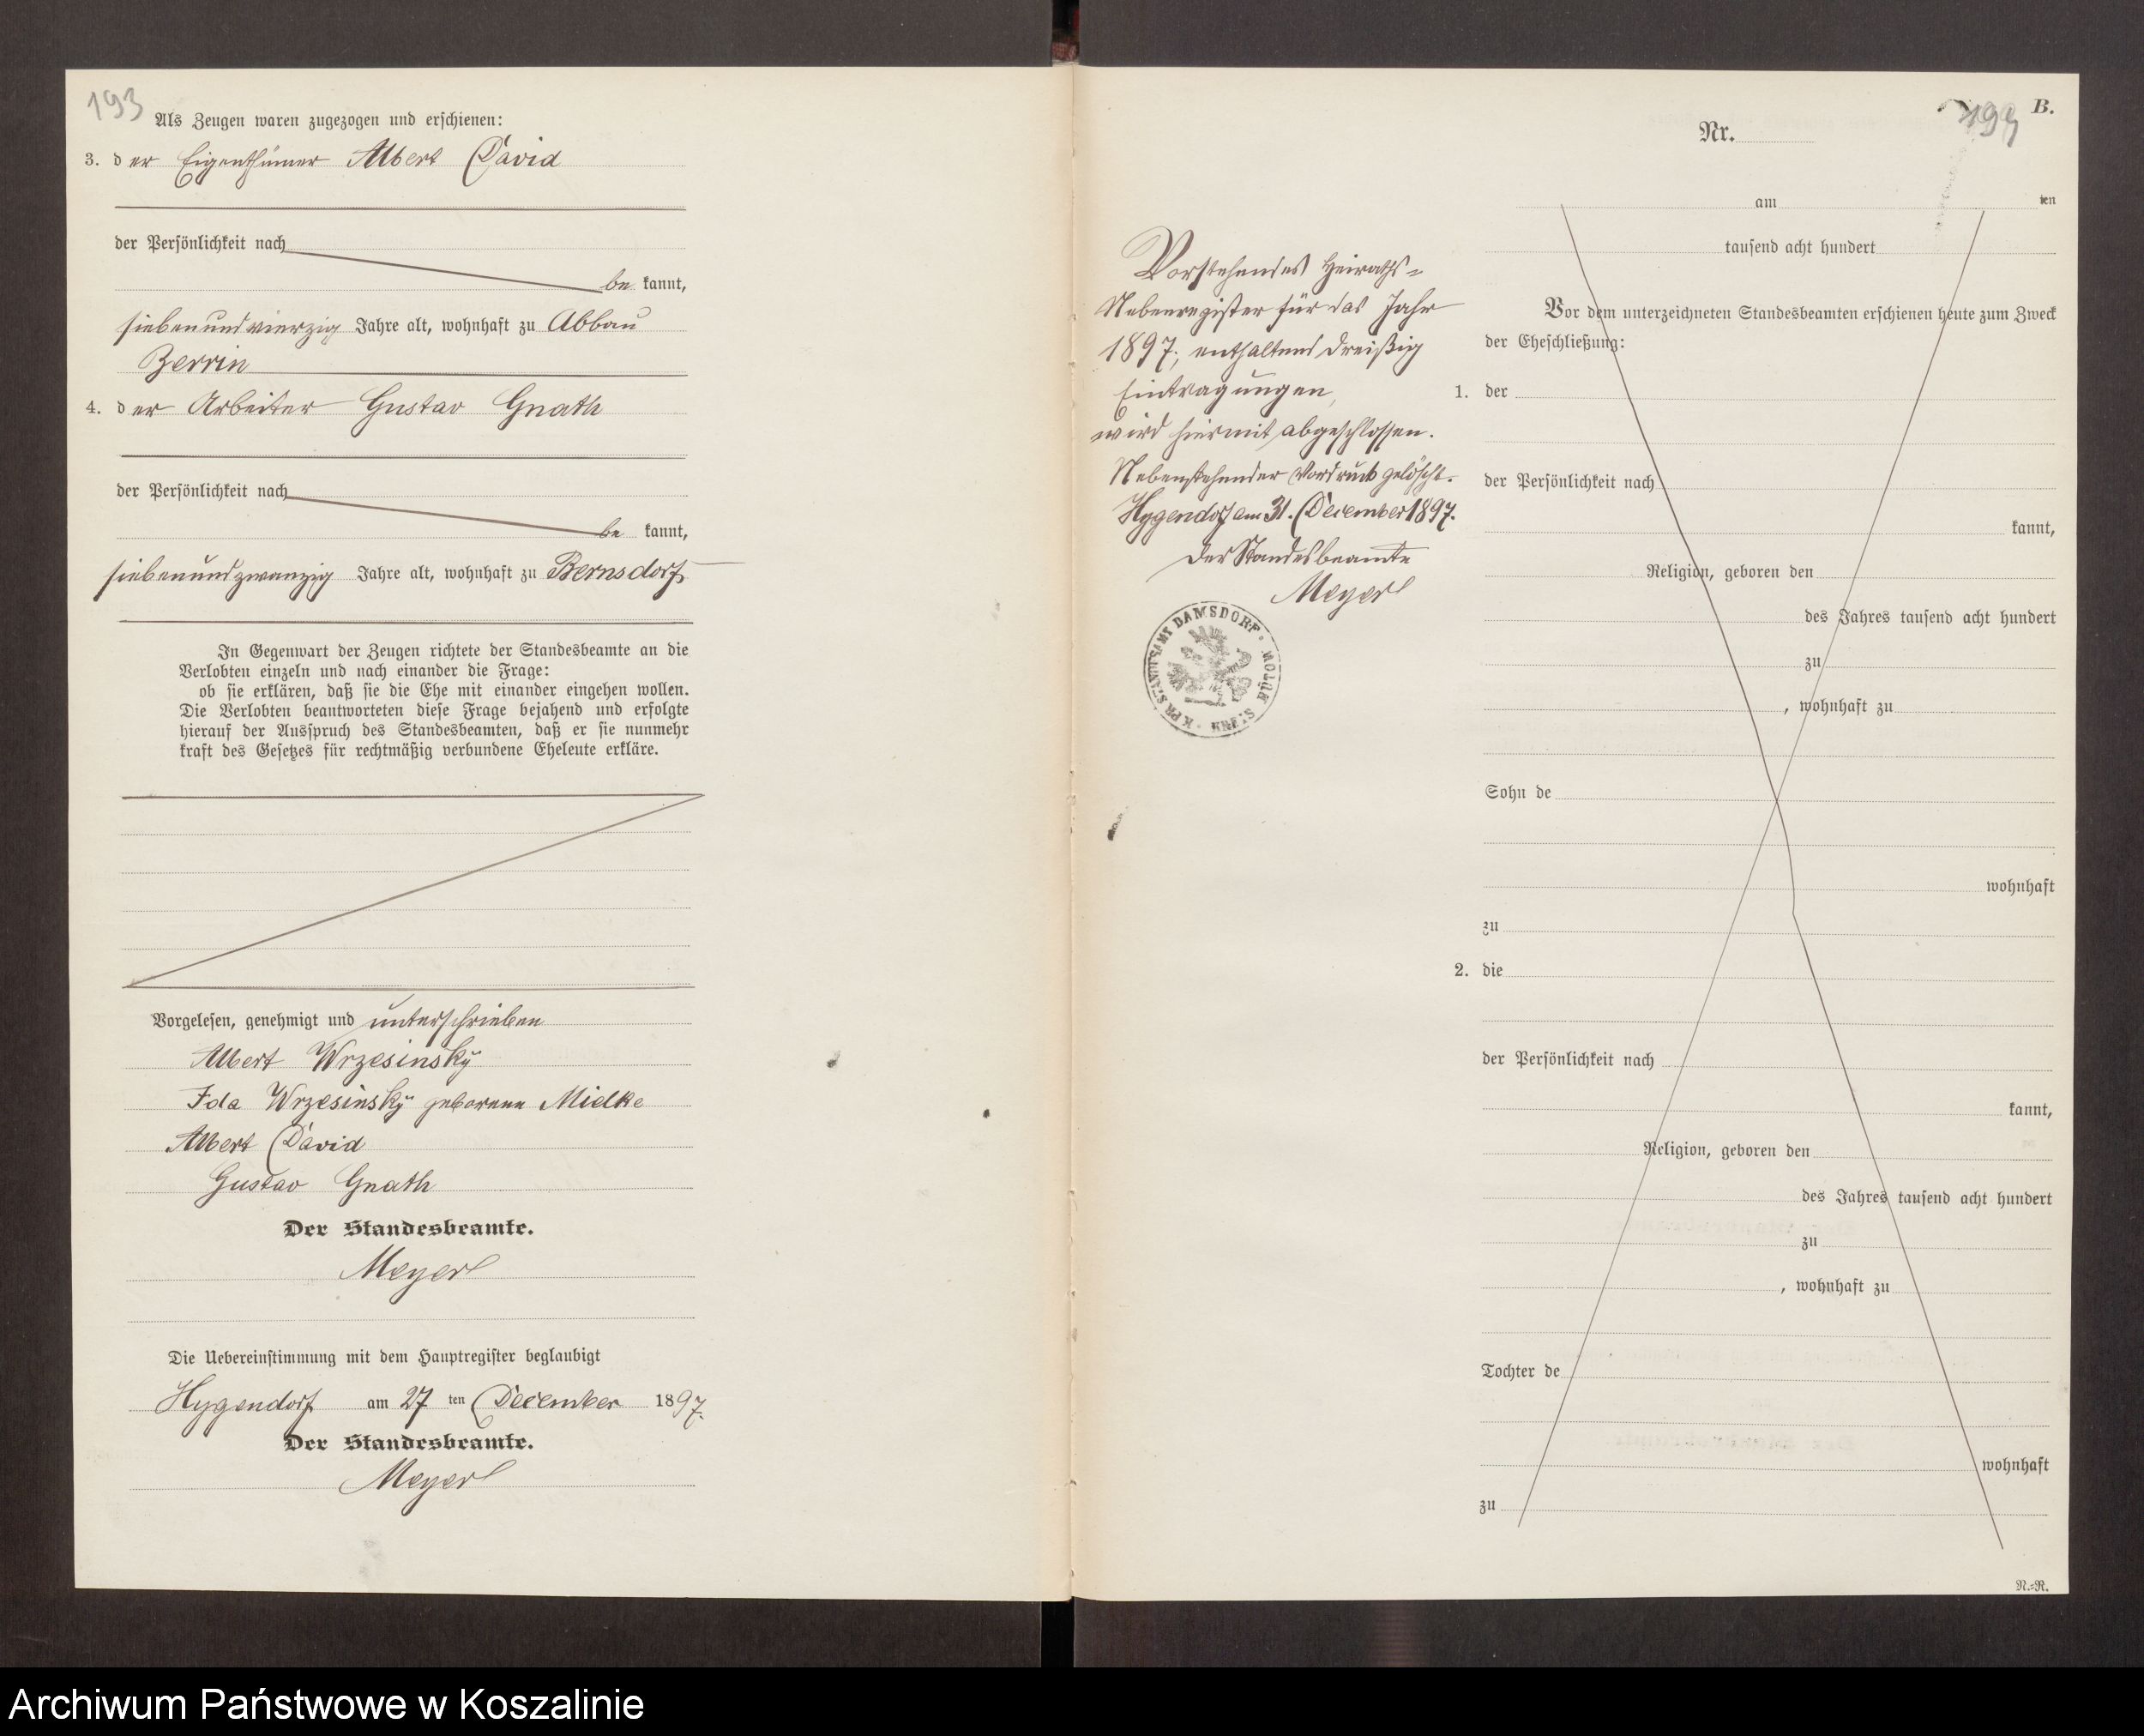 193
Als Zeugen waren zugezogen und erschienen:
3. der Eigenthümer Albert David
der Persönlichkeit nach
be kannt,
siebenundvierzig Jahre alt, wohnhaft zu Abbau
Zerrin
4. der Arbeiter Gustav Gnath
der Persönlichkeit nach
be kannt,
siebenundzwanzig Jahre alt, wohnhaft zu Bernsdorf
In Gegenwart der Zeugen richtete der Standesbeamte an die
Verlobten einzeln und nach einander die Frage:
ob sie erklären, daß sie die Ehe mit einander eingehen wollen.
Die Verlobten beantworteten diese Frage bejahend und erfolgte
hierauf der Ausspruch des Standesbeamten, daß er sie nunmehr
kraft des Gesetzes für rechtmäßig verbundene Eheleute erkläre.
Vorgelesen, genehmigt und unterschrieben
Albert Wrzesinsky
Ida Wrzesinsky geborene Mielke
Albert David
Gustav Gnath
Der Standesbeamte.
Meyer
Die Uebereinstimmung mit dem Hauptregister beglaubigt
Hygendorf am 27 ten December 1897.
Der Standesbeamte.
Meyer
Vorstehendes Heiraths-
Nebenregister für das Jahr
1897, enthaltend dreißig
Eintragungen,
wird hiermit abgeschlossen.
Nebenstehender Vordruck gelöscht.
Hygendorf am 31. December 1897.
Der Standesbeamte
Meyer
K. PR. STANDESAMT DAMSDORF · KREIS BÜTOW
B.
194
Nr.
am ten
tausend acht hundert
Vor dem unterzeichneten Standesbeamten erschienen heute zum Zweck
der Eheschließung:
1. der
der Persönlichkeit nach
kannt,
Religion, geboren den
des Jahres tausend acht hundert
zu
, wohnhaft zu
Sohn de
wohnhaft
zu
2. die
der Persönlichkeit nach
kannt,
Religion, geboren den
des Jahres tausend acht hundert
zu
, wohnhaft zu
Tochter de
wohnhaft
zu
N.-R.
Archiwum Państwowe w Koszalinie